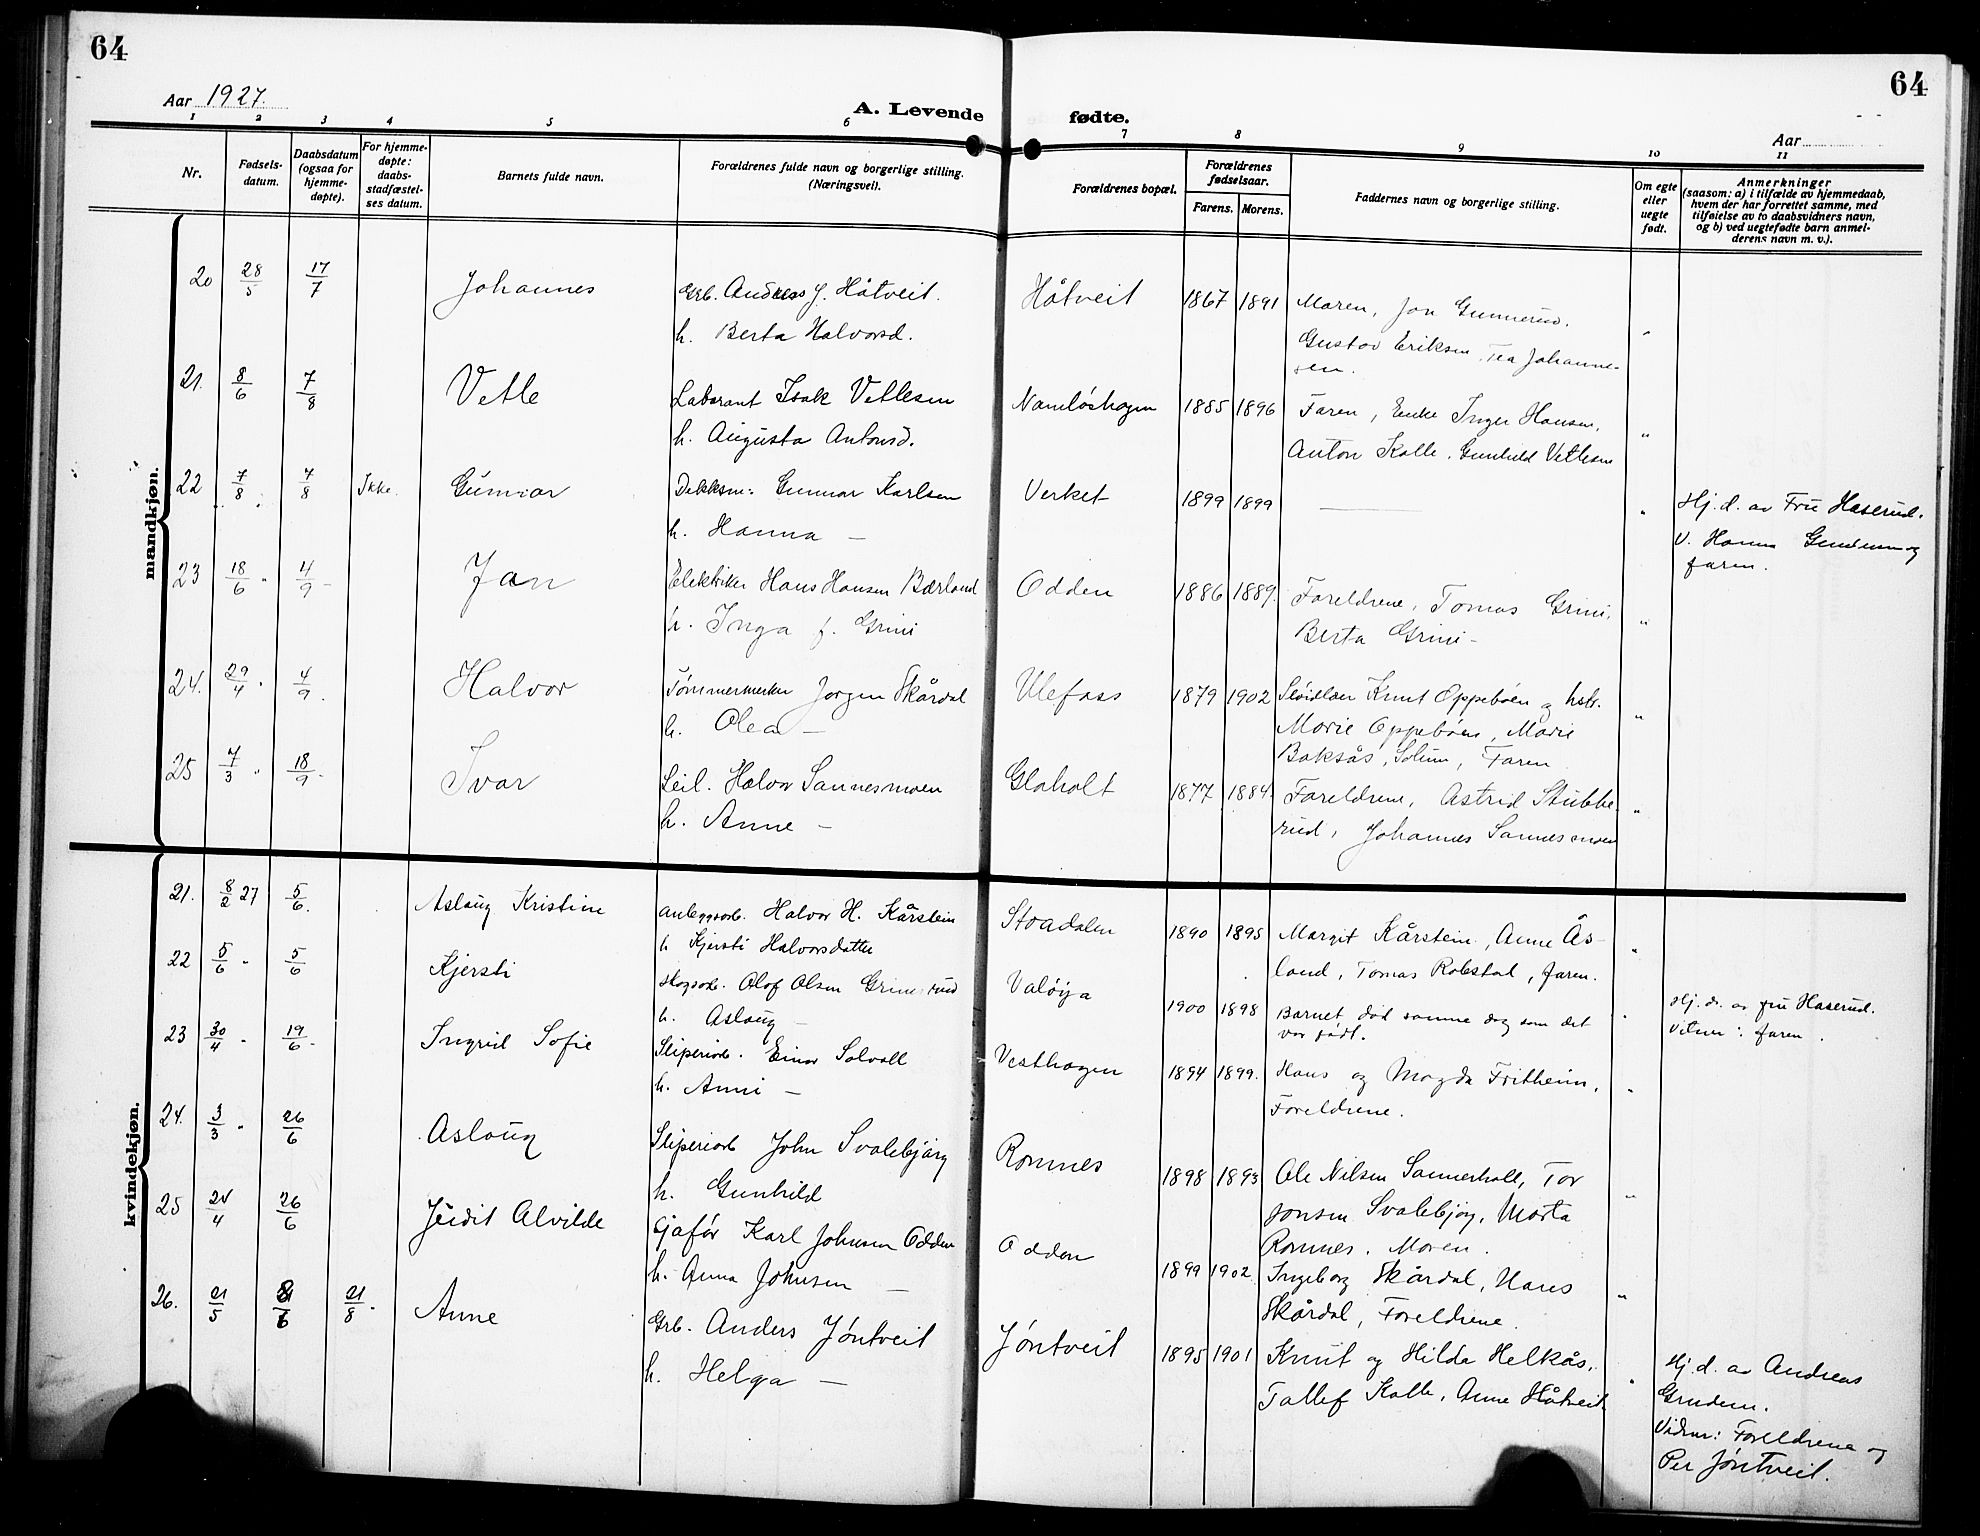 64
64
Aar 1927.
A. Levende fødte.
Aar
1 2 3 4 5 6 7 8 9 10 11
Nr.
Fødsels-
datum.
Daabsdatum
(ogsaa for
hjemme-
døpte).
For hjemme-
døpte:
daabs-
stadfæstel-
ses datum.
Barnets fulde navn.
Forældrenes fulde navn og borgerlige stilling.
(Næringsvei).
Forældrenes bopæl.
Forældrenes
fødselsaar.
Farens. Morens.
Faddernes navn og borgerlige stilling.
Om egte
eller
uegte
født.
Anmerkninger
(saasom: a) i tilfælde av hjemmedaab,
hvem der har forrettet samme, med
tilføielse av to daabsvidners navn,
og b) ved uegtefødte barn anmel-
derens navn m. v.).
mandkjøn.
20 28/5 17/7 Johannes Grb. Andreas J. Håtveit. Håtveit 1867 1891 Maren, Jon Gunnerud, "
h. Berta Halvorsd. Gustav Eriksen, Tea Johanne-
sen.
21. 8/6 7/8 Vetle Laborant Isak Vetlesen Namløshagen 1885 1896 Faren, Enke Inger Hansen, "
h. Augusta Antonsd. Anton Kalle, Gunhild Vetlesen
22 7/8 7/8 Ikke. Gunnar Dekksm: Gunnar Karlsen Verket 1899 1899 — " Hj. d. av Fru Haserud.
h. Hanna — V. Hanna Grudem og
faren.
23 18/6 4/9 Jan Elektriker Hans Hansen Bærland Odden 1886 1889. Foreldrene, Tomas Grini, "
h. Inga f. Grini Berta Grini -
24. 29/4 4/9 Halvor Tømmermerker Jørgen Skårdal Ulefoss 1879 1902 Sløidlær Knut Oppebøen og hstr. "
h. Olea — Marie Oppebøen, Marie
Baksås, Solum, Faren
25 7/3 18/9 Ivar Seil. Halvor Sannesmoen Glaholt 1877 1884. Foreldrene, Astrid Stubbe- "
h. Anne — rud, Johannes Sannesmoen
kvindekjøn.
21. 8/2 27 5/6. Aslaug Kristine Anleggsarb. Halvor H. Kårstein Stoadalen 1890 1895 Margit Kårstein, Anne Ås- "
h Kjersti Halvorsdatter land, Tomas Rolestad, faren.
22 5/6 " 5/6 Kjersti Skogsarb. Olaf Olsen Grimsrud Valøya 1900 1898 Barnet død samme dag som det " Hj. d. av fru Haserud.
h. Aslaug — var født. Vitner: faren.
23 30/4 " 19/6 - Ingrid Sofie Sliperiarb. Einar Solvoll Vesthagen 1894 1899. Hans og Magda Fritheim, "
h. Anni — Foreldrene.
24. 3/3 " 26/6 Aslaug Sliperiarb John Svalebjørg Romnes 1898 1893 Ole Nilsen Sannerholt, Tor "
h. Gunhild Jonsen Svalebjørg, Marta
Romnes, Moren.
25 24/4 26/6 Judit Alvilde Sjafør Karl Johnsen Odden Odden 1899 1902 Ingeborg Skårdal, Hans "
h. Anna Johnsen — Skårdal, Foreldrene.
26. 21/5 8/6 21/8. Anne Grb. Anders Jøntveit Jøntveit 1895 1901 Knut og Hilda Helkås, " Hj. d. av Andreas
h. Helga — Tallef Kalle, Anne Håtveit. Grudem.
Vidner: Foreldrene og
Per Jøntveit.